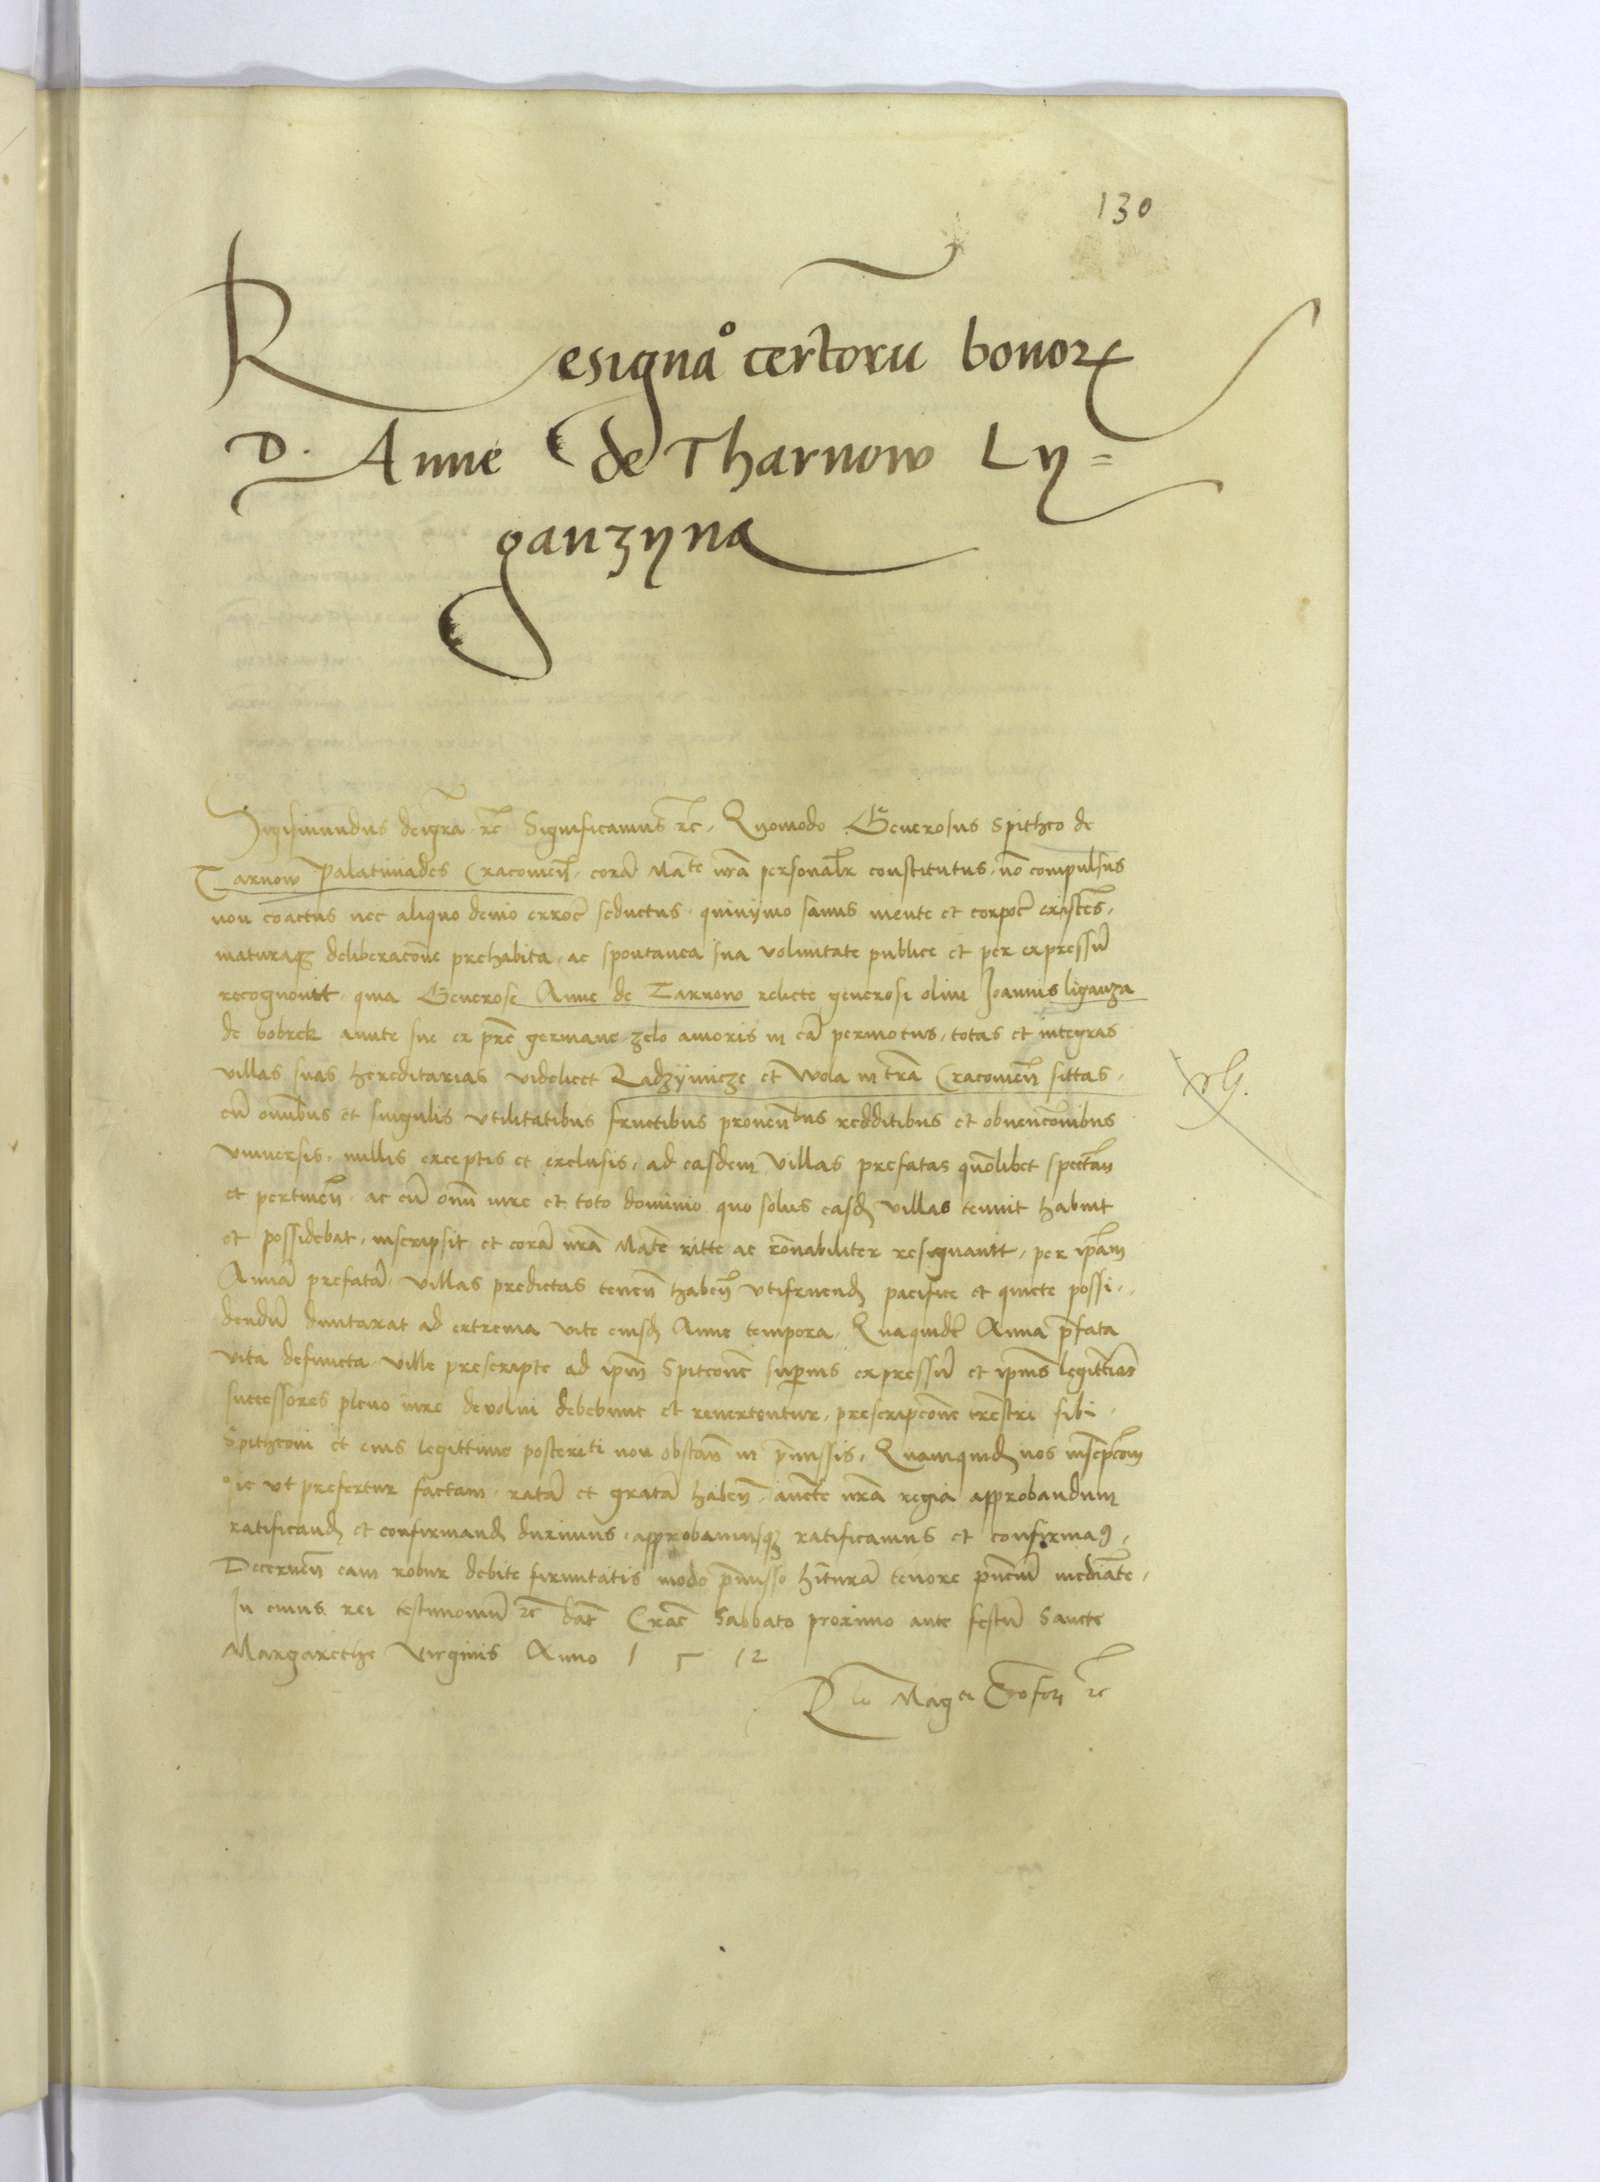 130
Resignaº certoru bonoꝝ
D. Anne de Tharnow Ly=
ganzyna
Sigismundus deigra rc Significamus rc, Quomodo Generosus Spitheo de
Tarnow Palatinades Cracovien̄, corā Mate nrā personalr constitutus, nō compulsus
non coactus nec aliquo devio errore seductus, quinymo sanus mente et corpore existens,
maturaqꝫ deliberacone prehabita, ac spontanea sua voluntate publice et per expressū
recognovitt, quia Generose Anne de Tarnow relicte generosi olim Joannis liganza
de bobrek amite sue ex pre germane zelo amoris in eā permotus, totas et integras
villas suas hereditarias videlicet Radzymicze et Wola in trā Cracovien̄ sittas,
cū omībus et singulis utilitatibus fructibus provenbus redditibus et obvencionibus
universis, nullis exceptis et exclusis, ad easdem villas prefatas quolibet spectan̄
et pertinen̄, ac cū omī iure et toto dominio quo solus easd villas tenuit habuit
et possidebat, inscripsit et corā nrā Mate ritte ac rōnabiliter resignavitt, per ipam
Annā prefatā villas predictas tenen̄ haben̄ utifruend pacifice et quiete possi-
dendū duntaxat ad extrema vite eiusd Anne tempora, Quaquidē Anna pfata
vita defuncta ville prescripte ad ipm Spitconē supius expressū et ipius legittimos
successores pleno iure devolvi debebunt et revertentur, prescripcone trestri sibi
Spithconi et eius legittime posteriti non obstan̄ in pmissis, Quamquid nos inscpcom
sic ut prefertur factam, ratā et gratā haben̄, aucte nrā regia approbandum
ratificand et confirmand duximus, approbamusqꝫ ratificamus et confirmaꝰ,
Decernen̄ eam robur debite firmitatis modo pmisso hiturā tenore pnciū mediate,
In cuius rei testimoniū rc dat Crac Sabbato proximo ante festū Sancte
Margarethe Virginis Anno 1 5 12